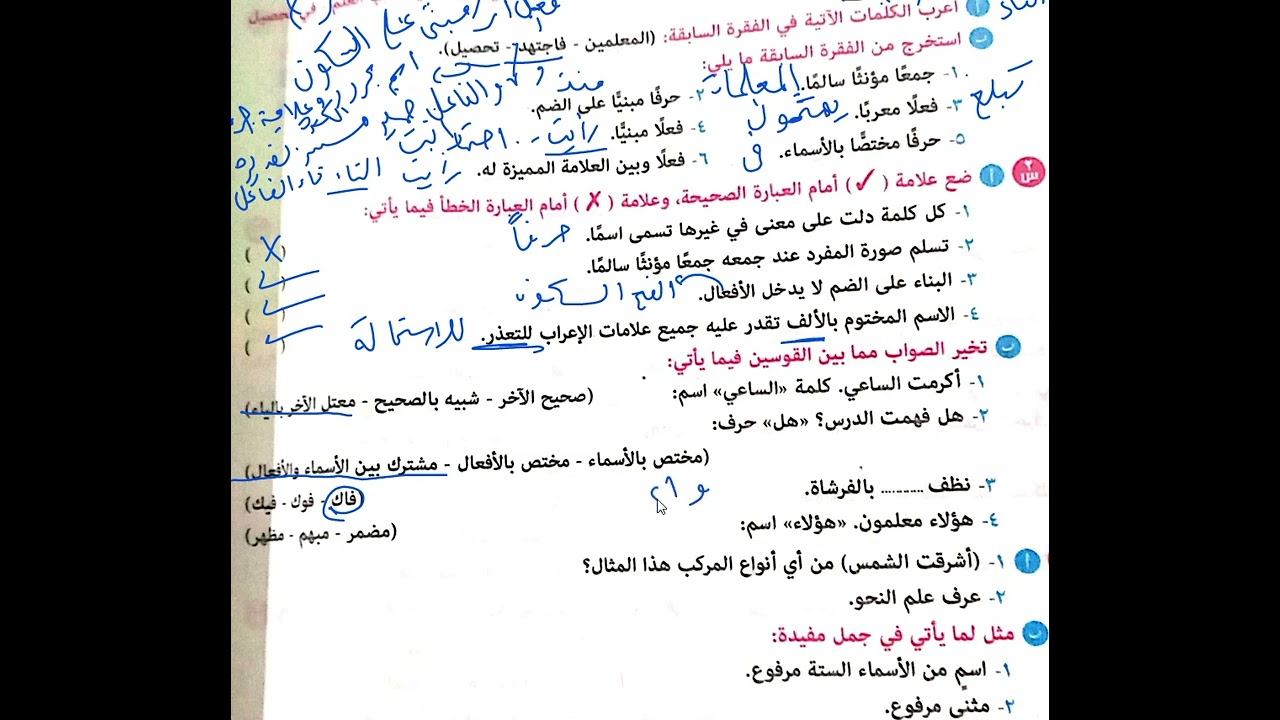 أ أعرب الكلمات الآتية في الفقرة السابقة: (المعلمين - فاجتهد - تحصيل).
ب استخرج من الفقرة السابقة ما يلي:
١- جمعًا مؤنثًا سالمًا. المعلمات ٢- حرفًا مبنيًّا على الضم. منذ
٣- فعلًا معربًا. ٤- فعلًا مبنيًّا. رأيت
٥- حرفًا مختصًّا بالأسماء. في ٦- فعلًا وبين العلامة المميزة له. رأيت التاء تاء الفاعل
س٢ أ ضع علامة (✓) أمام العبارة الصحيحة، وعلامة (✗) أمام العبارة الخطأ فيما يأتي:
١- كل كلمة دلت على معنى في غيرها تسمى اسمًا. حرفاً (X)
٢- تسلم صورة المفرد عند جمعه جمعًا مؤنثًا سالمًا. (✓)
٣- البناء على الضم لا يدخل الأفعال. الفتح السكون (✓)
٤- الاسم المختوم بالألف تقدر عليه جميع علامات الإعراب للتعذر. للاستحالة (✓)
ب تخير الصواب مما بين القوسين فيما يأتي:
١- أكرمت الساعي. كلمة «الساعي» اسم: (صحيح الآخر - شبيه بالصحيح - معتل الآخر بالياء)
٢- هل فهمت الدرس؟ «هل» حرف:
(مختص بالأسماء - مختص بالأفعال - مشترك بين الأسماء والأفعال)
٣- نظف .......... بالفرشاة. (فاك - فوك - فيك)
٤- هؤلاء معلمون. «هؤلاء» اسم: (مضمر - مبهم - مظهر)
أ ١- (أشرقت الشمس) من أي أنواع المركب هذا المثال؟
٢- عرف علم النحو.
ب مثل لما يأتي في جمل مفيدة:
١- اسمٍ من الأسماء الستة مرفوع.
٢- مثنًى مرفوع.